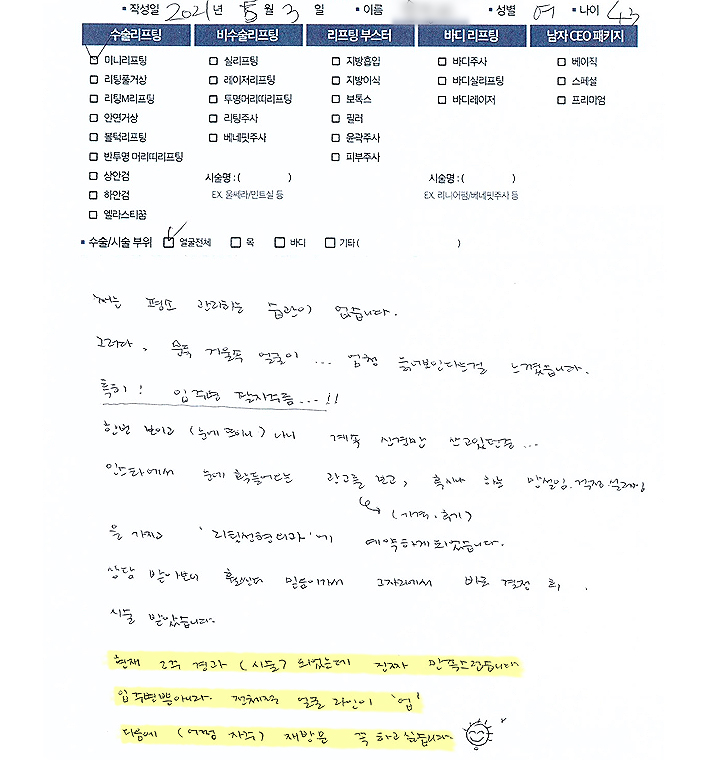 작성일 2021년 5월 3일 이름 성별 여 나이 43
수술리프팅 비수술리프팅 리프팅 부스터 바디 리프팅 남자 CEO 패키지
미니리프팅 실리프팅 지방흡입 바디주사 베이직
리팅풀거상 레이저리프팅 지방이식 바디실리프팅 스페셜
리팅M리프팅 투명머리띠리프팅 보톡스 바디레이저 프리미엄
안면거상 리팅주사 필러
볼턱리프팅 베네핏주사 윤곽주사
반투명 머리띠리프팅 피부주사
상안검 시술명 : ( ) 시술명 : ( )
하안검 EX. 울쎄라/민트실 등 EX. 리니어펌/베네핏주사 등
엘라스티꿈
수술/시술 부위 얼굴전체 목 바디 기타 ( )
저는 평소 관리하는 습관이 없습니다.
그러다, 문득 거울속 얼굴이 ... 엄청 늙어보인다는걸 느꼈습니다.
특히! 입주변 팔자주름...!!
한번 보이고 (눈에 띄이니) 나니 계속 신경만 쓰고있던중...
인스타에서 눈에 확들어오는 광고를 보고, 혹시나 하는 망설임. 걱정. 설레임
(가격. 후기)
을 가지고 '리팅성형외과'에 예약하게되었습니다.
상담 받아보니 훨씬더 믿음이가서 그자리에서 바로 결정 후,
시술 받았습니다.
현재 2주 경과 (시술) 되었는데 진짜 만족스럽습니다
입주변뿐아니라. 전체적 얼굴 라인이 '업'
다음에 (여명 자수) 재방문 꼭 하고싶습니다.